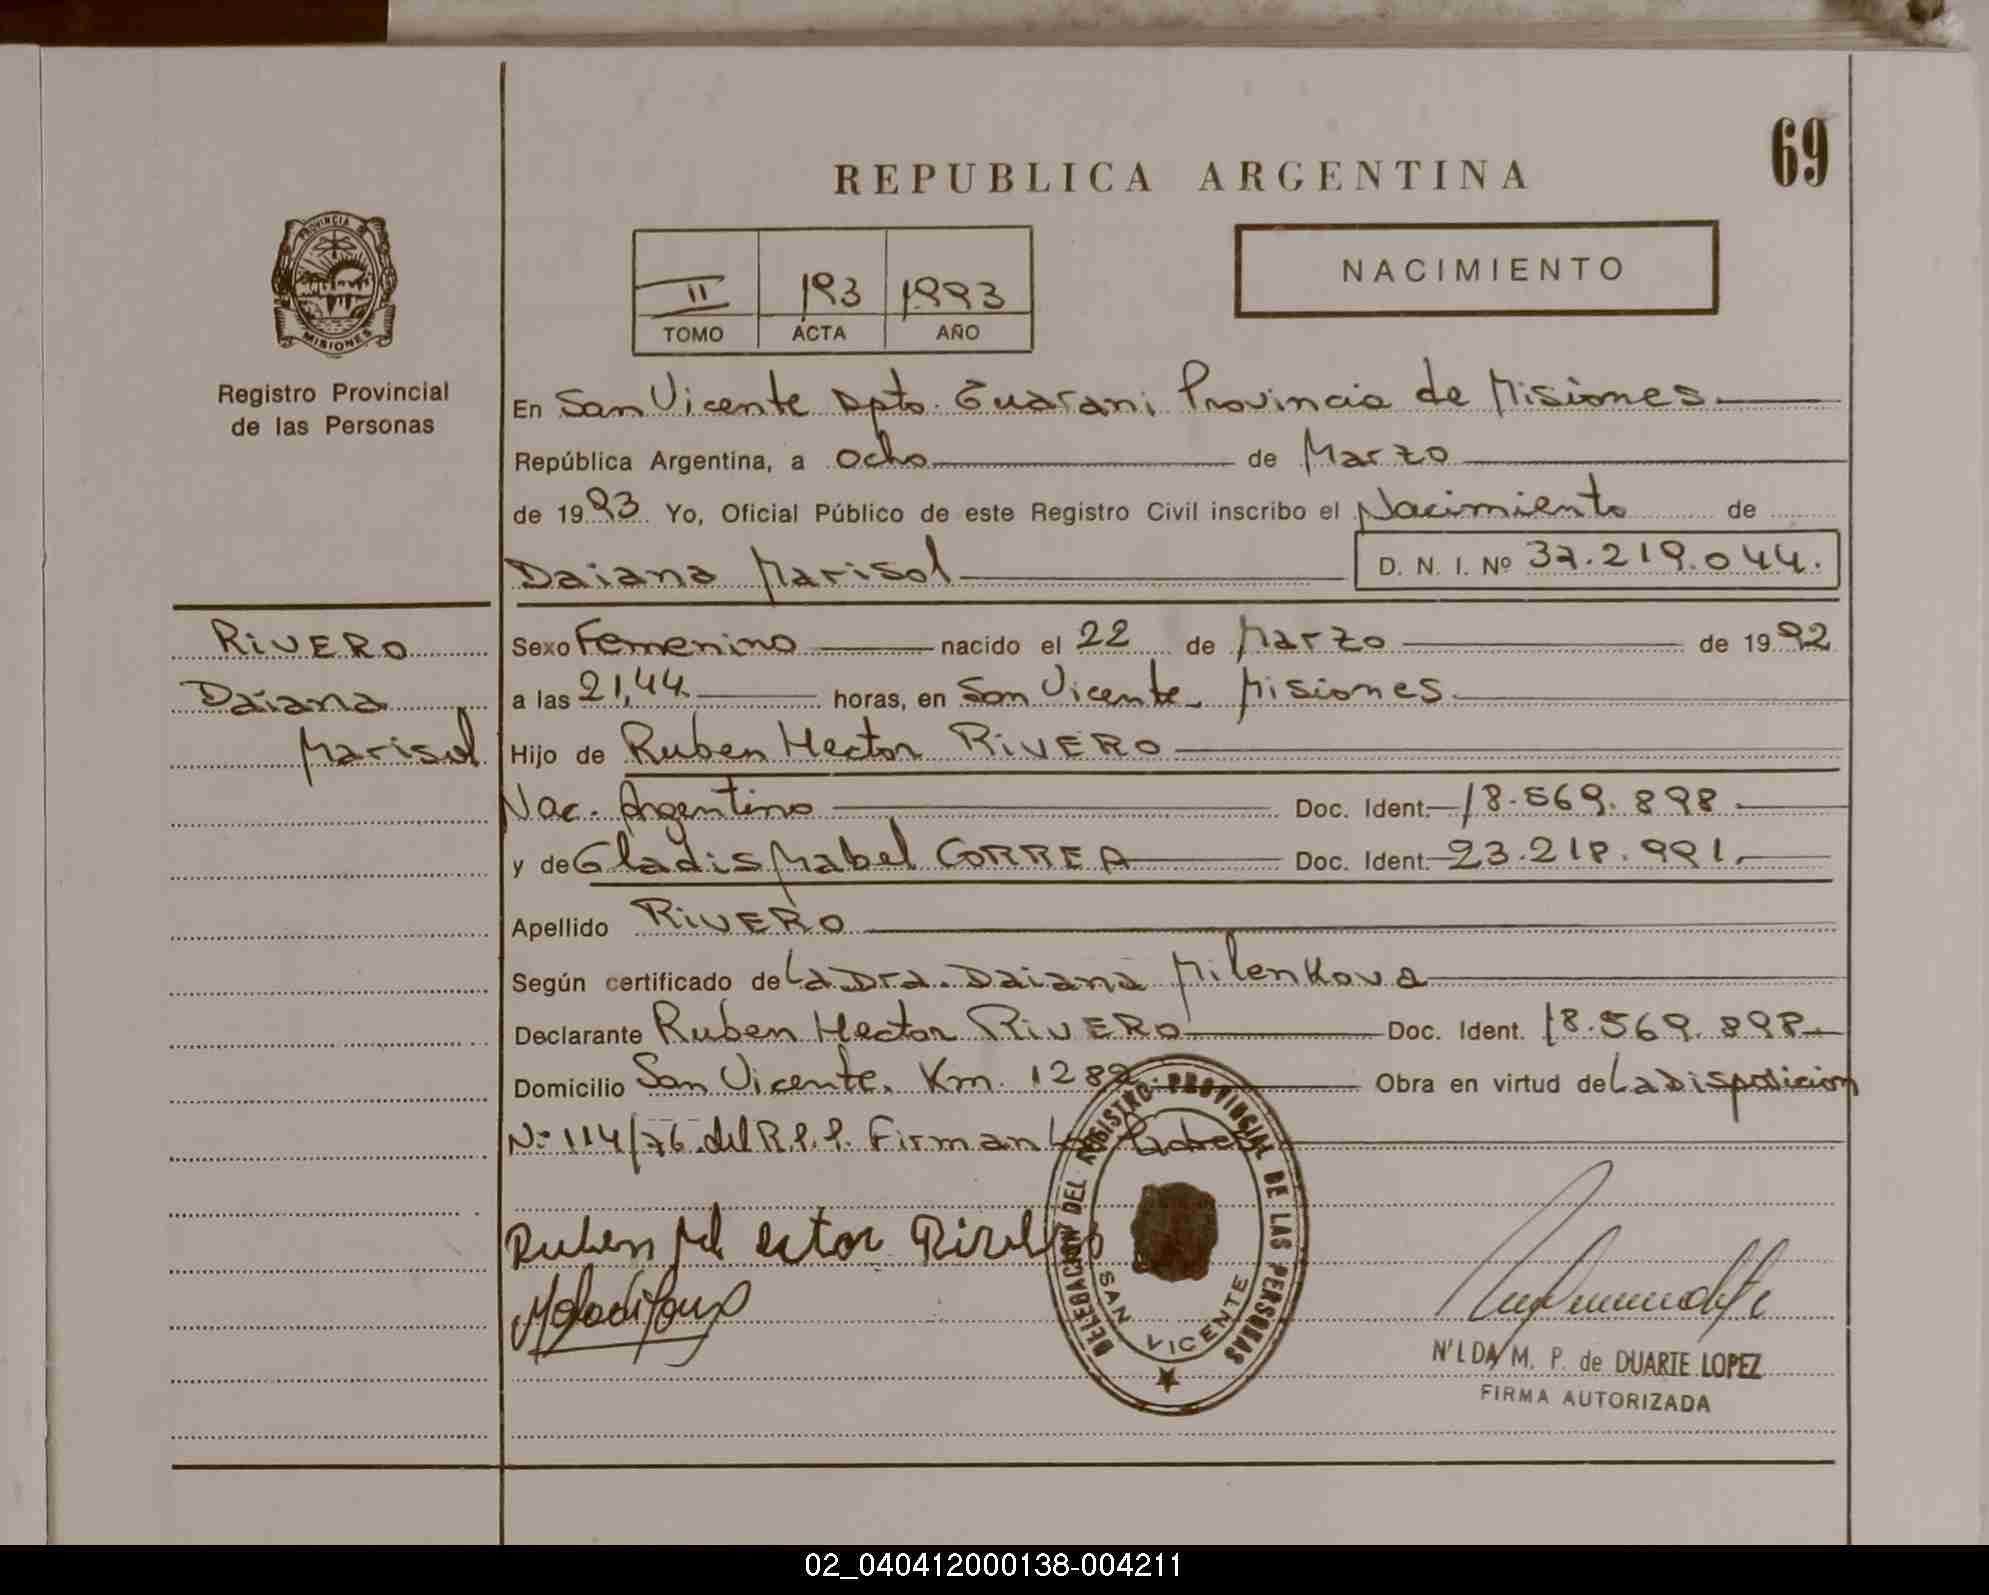 69
REPUBLICA ARGENTINA
PROVINCIA DE MISIONES
II 193 1993
TOMO ACTA AÑO
NACIMIENTO
Registro Provincial
de las Personas
En San Vicente Dpto. Guarani Provincia de Misiones
República Argentina, a ocho de Marzo
de 1993 Yo, Oficial Público de este Registro Civil inscribo el Nacimiento de
Daiana Marisol D. N. I. Nº 37.219.044.
RIVERO
Daiana
Marisol
Sexo Femenino nacido el 22 de Marzo de 1992
a las 21,44 horas, en San Vicente Misiones
Hijo de Ruben Hector RIVERO
Nac. Argentino Doc. Ident. 18.569.898
y de Gladis Mabel CORREA Doc. Ident. 23.218.991
Apellido RIVERO
Según certificado de La Dra. Daiana Milenkova
Declarante Ruben Hector RIVERO Doc. Ident. 18.569.898
Domicilio San Vicente. Km. 1282. Obra en virtud de La Disposicion
Nº 114/76 del R.P.P. Firman los Padres
Ruben Hector
DELEGACION DEL REGISTRO PROVINCIAL DE LAS PERSONAS
SAN VICENTE
N'LDA M. P. de DUARTE LOPEZ
FIRMA AUTORIZADA
02_040412000138-004211